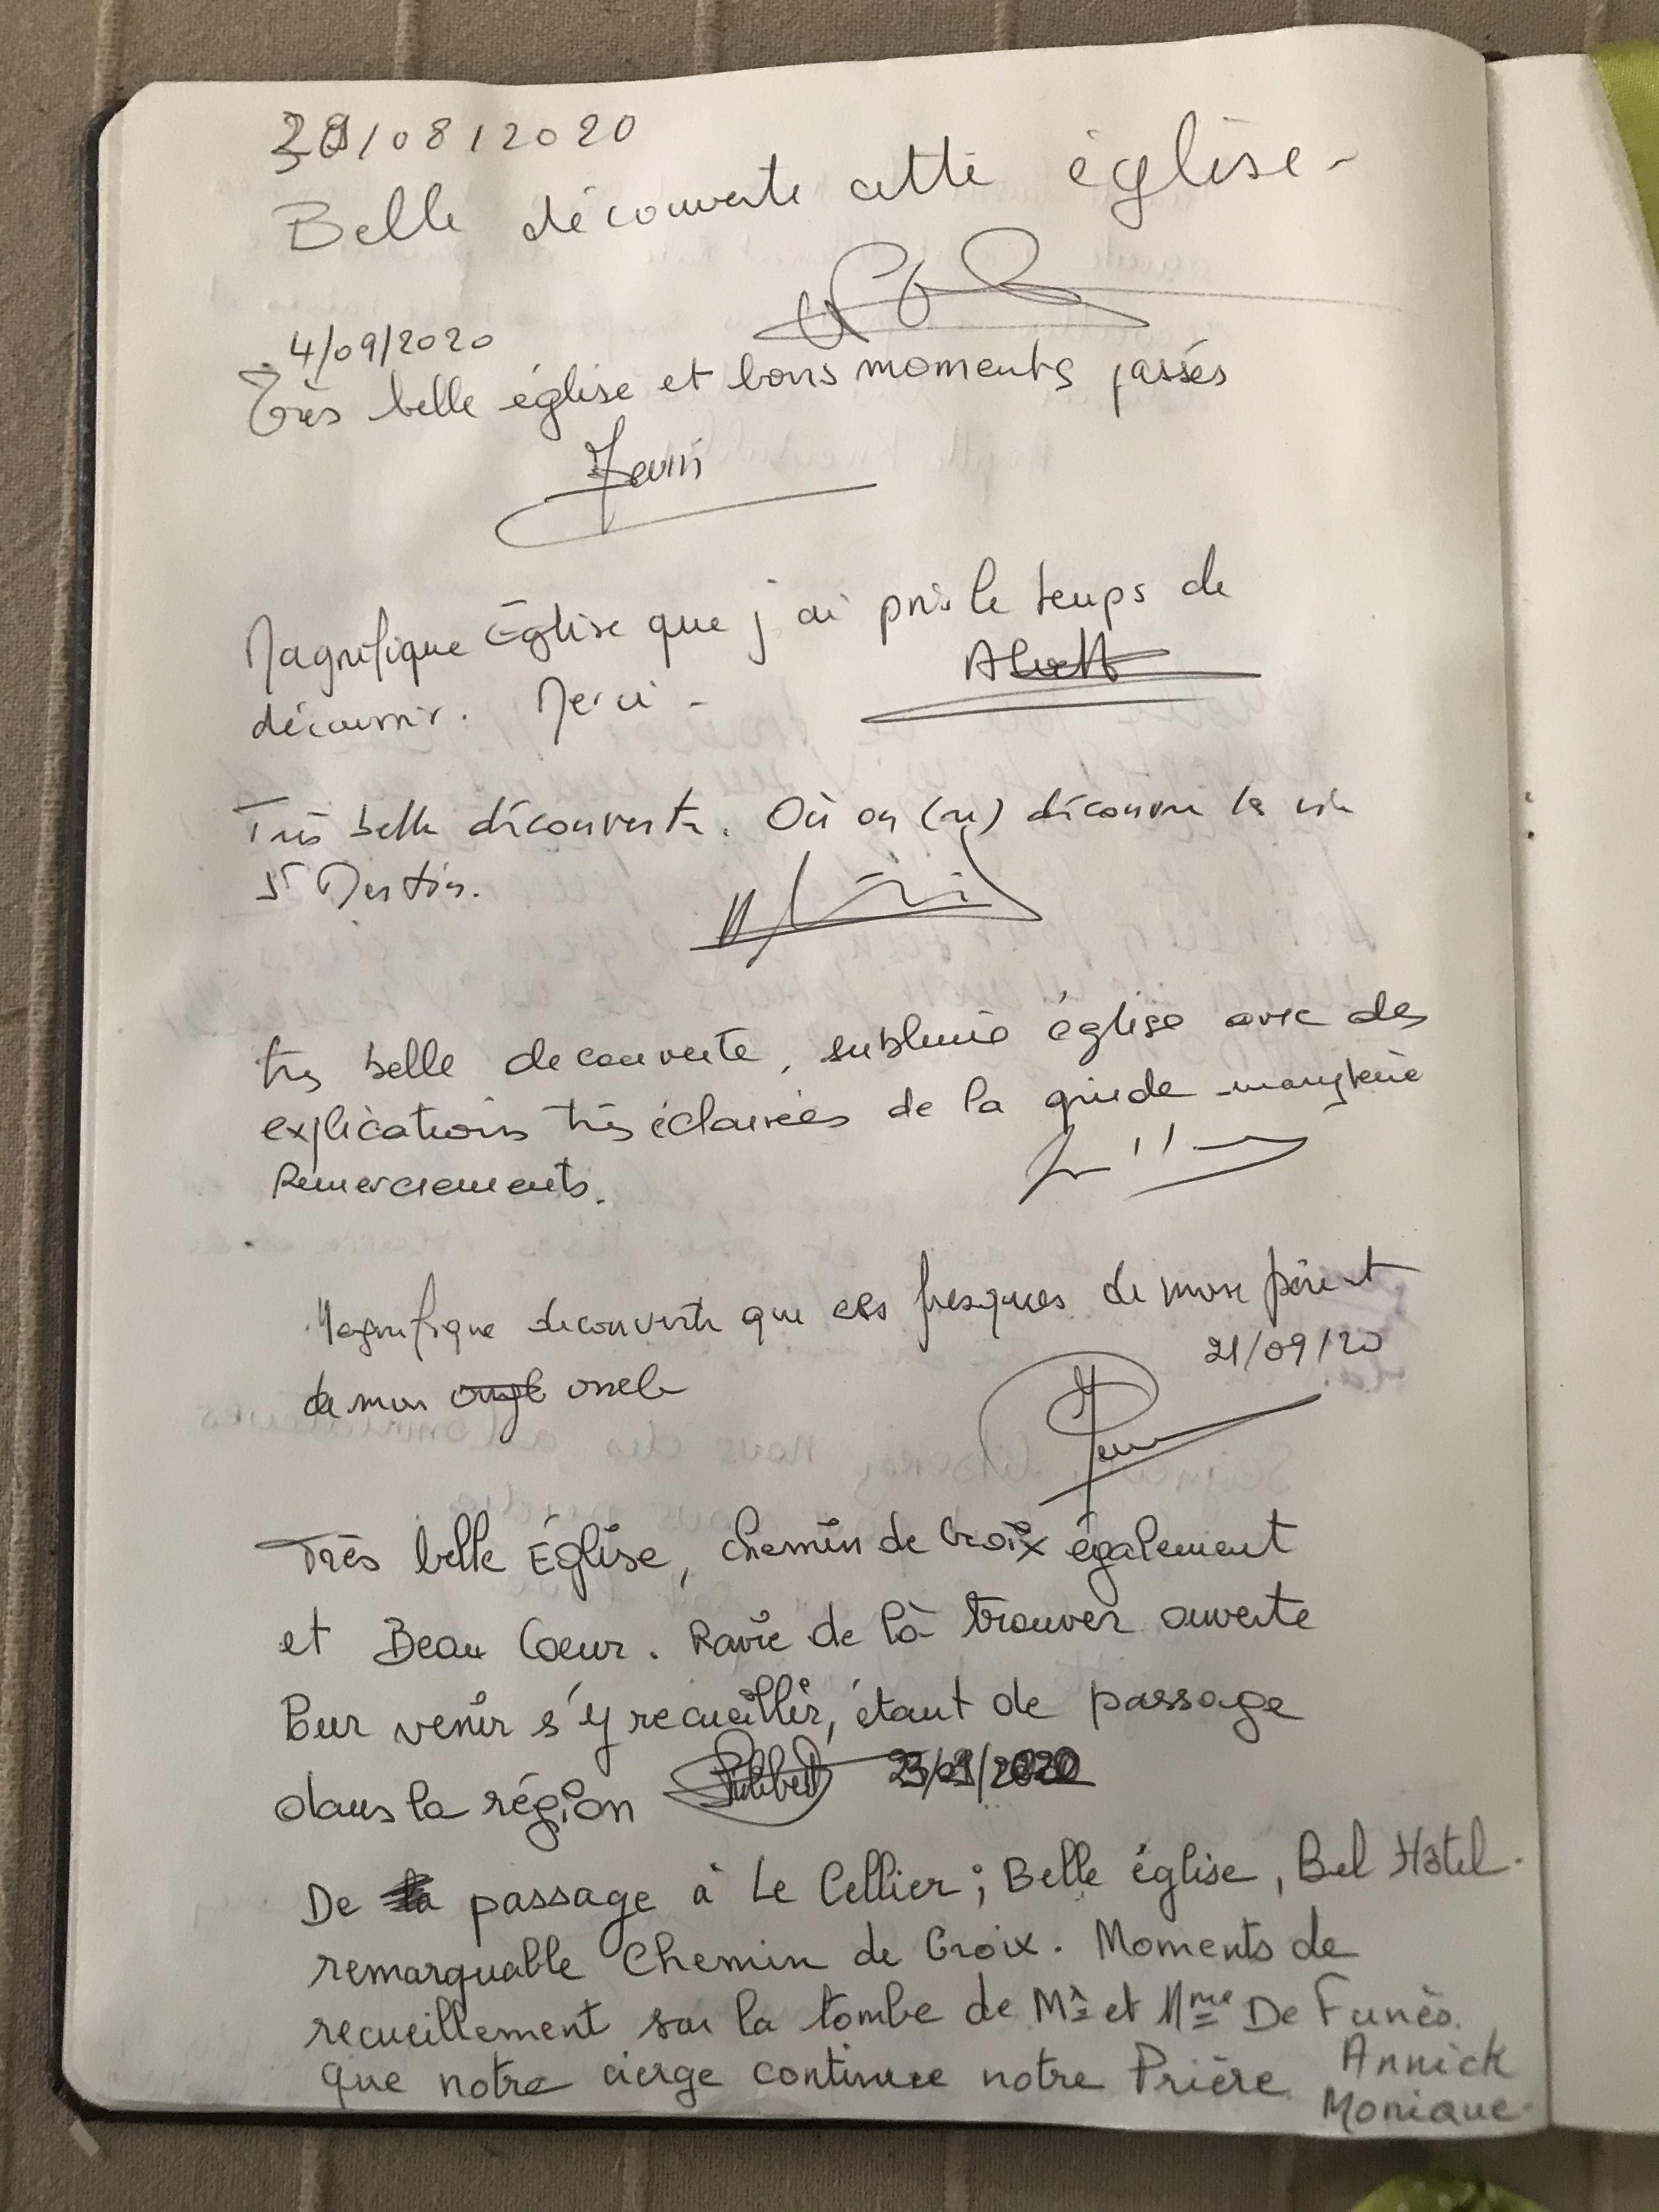 /08/2020
Belle découverte cette église -
4/09/2020
Très belle église et bons moments passés
Magnifique Église que j'ai pris le temps de
découvrir. Merci -
Très belle découverte. Où on (re) découvre la vie
St Martin.
très belle decouverte, sublime église avec des
explications très éclairées de la guide
Remerciements.
Magnifique decouverte que ces fresques de mon père et
21/09/20
de mon oncle
Très belle Église, chemin de Croix également
et Beau Coeur. Ravie de là trouver ouverte
Pour venir s'y recueillir, étant de passage
dans la région
De passage à Le Cellier ; Belle église, Bel Hôtel.
remarquable Chemin de Croix. Moments de
recueillement sur la tombe de Mr et Mme De Funès.
que notre cierge continue notre Prière
Annick
Monique